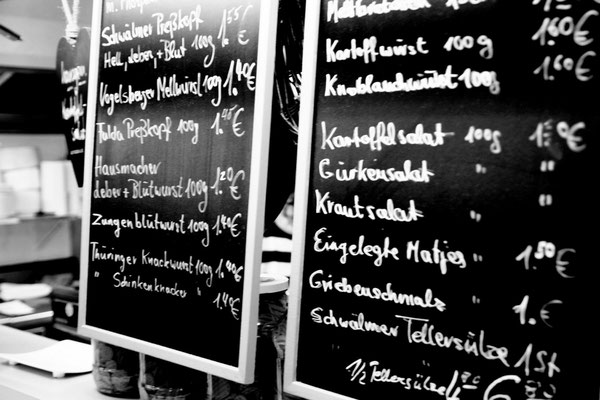 Schwälmer Preßkopf 1.55 €
Hell, Leber, + Blut 100g
Vogelsberger Mellwurst 100g 1.40 €
Fulda Preßkopf 100g 1.45 €
Hausmacher
Leber + Blutwurst 100g 1.20 €
Zungenblutwurst 100g 1.40 €
Thüringer Knackwurst 100g 1.40 €
" Schinkenknacker " 1.40 €
1.60 €
Kartoffwurst 100g 1.60 €
Knoblauchwurst 100g
Kartoffelsalat 100g €
Gurkensalat " "
Krautsalat " "
Eingelegte Matjes " 1.50 €
Griebenschmalz " 1.- €
Schwälmer Tellersülze 1 St
1/2 Tellersülze